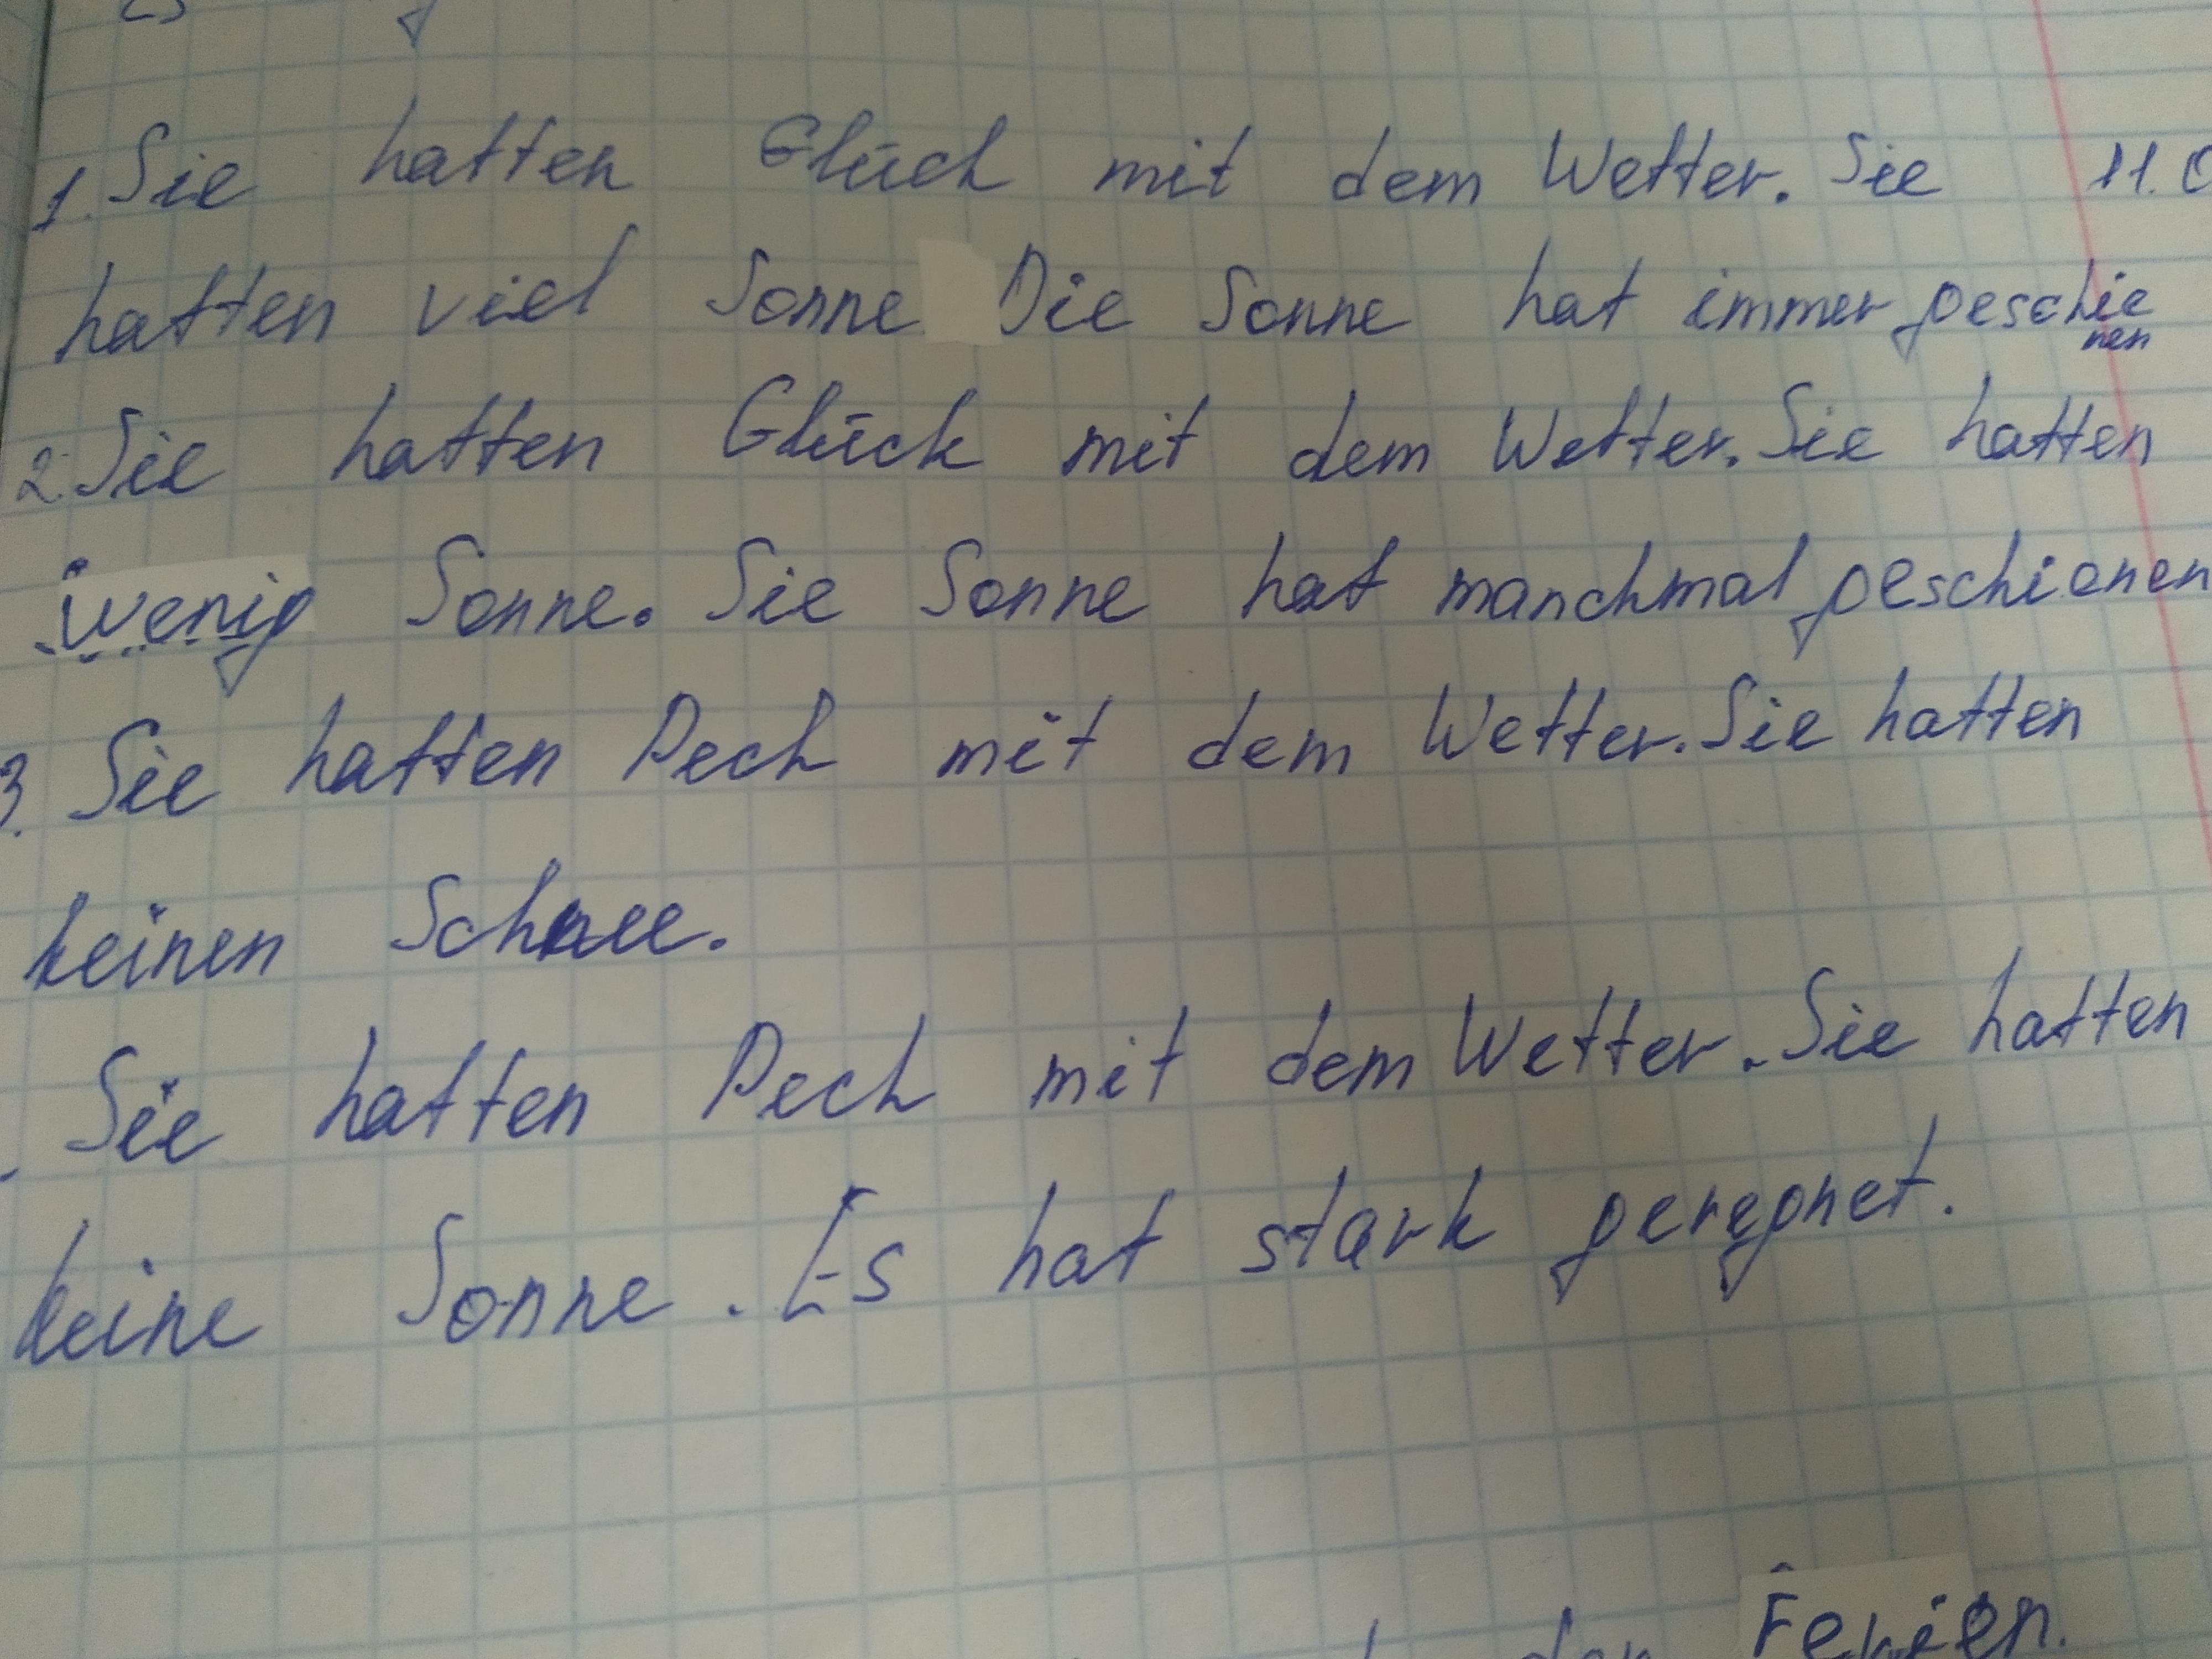 1. Sie hatten Glück mit dem Wetter. Sie 11.
hatten viel Sonne Die Sonne hat immer geschie
nen
2. Sie hatten Glück mit dem Wetter. Sie hatten
wenig Sonne. Sie Sonne hat manchmal geschienen
3. Sie hatten Pech mit dem Wetter. Sie hatten
keinen Schnee.
Sie hatten Pech mit dem Wetter. Sie hatten
keine Sonne. Es hat stark geregnet.
den Ferien.